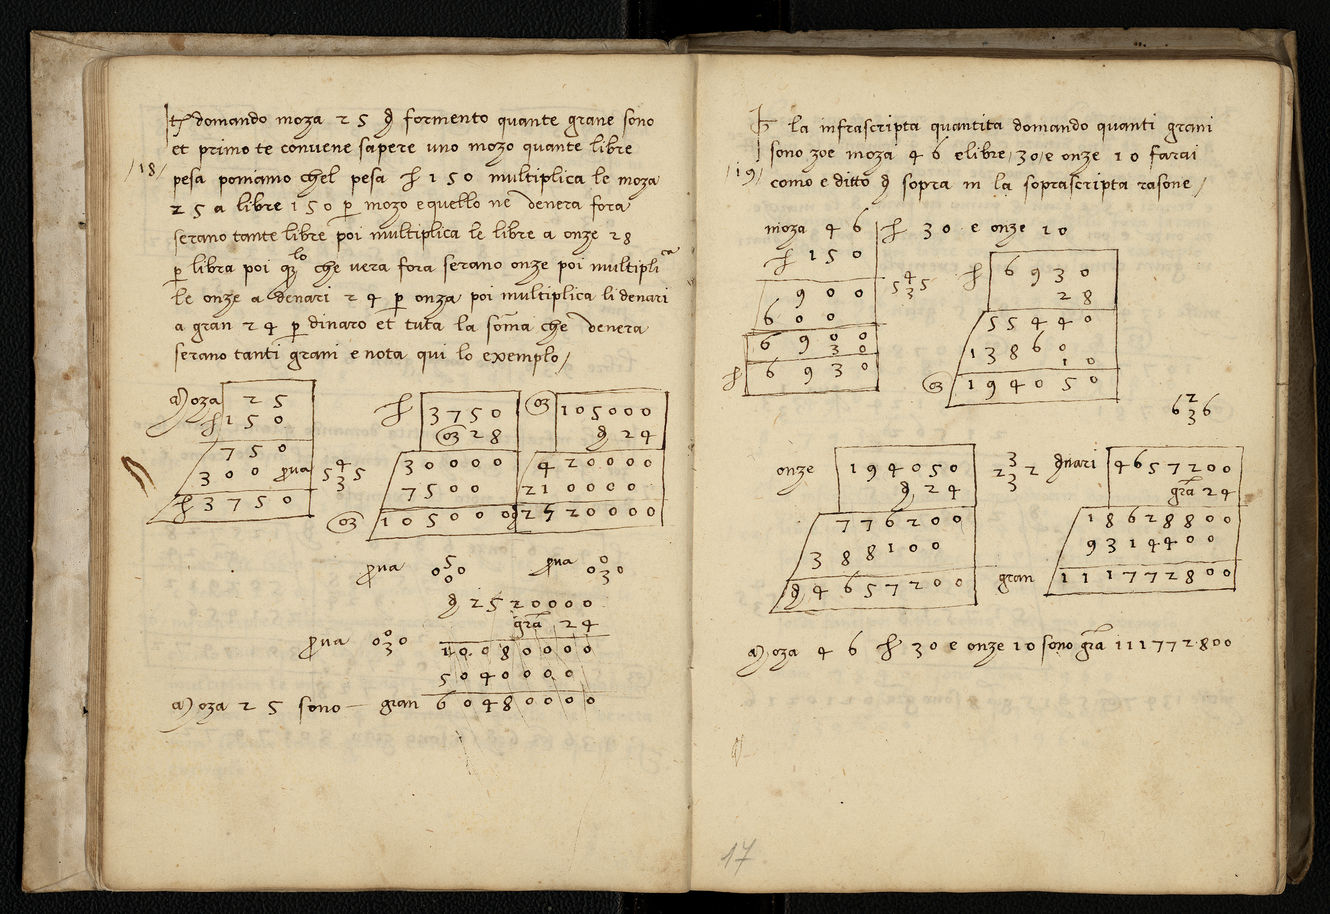 Itē domando moza 25 d formento quante grane sono
et primo te convene sapere uno mozo quante libre
/18/
pesa poniamo chel pesa ℔ 150 multiplica le moza
25 a libre 150 p mozo e quello ne denera fora
serano tante libre poi multiplica le libre a onze 28
p libra poi qllo che vera fora serano onze poi multiplica
le onze a denari 24 p onza poi multiplica li denari
a gran 24 p dinaro et tuta la soma che denera
serano tanti grani e nota qui lo exemplo/
Moza 25
℔ 150
750
300 prova 5 4 3 5
℔ 3750
℔ 3750
oz 28
30000
7500
oz 105000
oz 105000
d 24
420000
210000
d 2520000
prova 0 5 0 0
prova 0 0 3 0
d 2520000
gra 24
prova 0 0 3 0
10080000
5040000
Moza 25 sono gran 60480000
It la infrascripta quantita domando quanti grani
sono zoe moza 46 e libre 30 e onze 10 farai
/19/
como e ditto d sopra in la soprascripta rasone/
moza 46 ℔ 30 e onze 10
℔ 150
900
600
6900
30
℔ 6930
5 4 3 5
℔ 6930
28
55440
13860
10
oz 194050
6 2 3 6
onze 194050
d 24
776200
388100
d 4657200
2 3 3 2
dnari 4657200
gra 24
18628800
9314400
gran 111772800
Moza 46 ℔ 30 e onze 10 sono gra 111772800
17